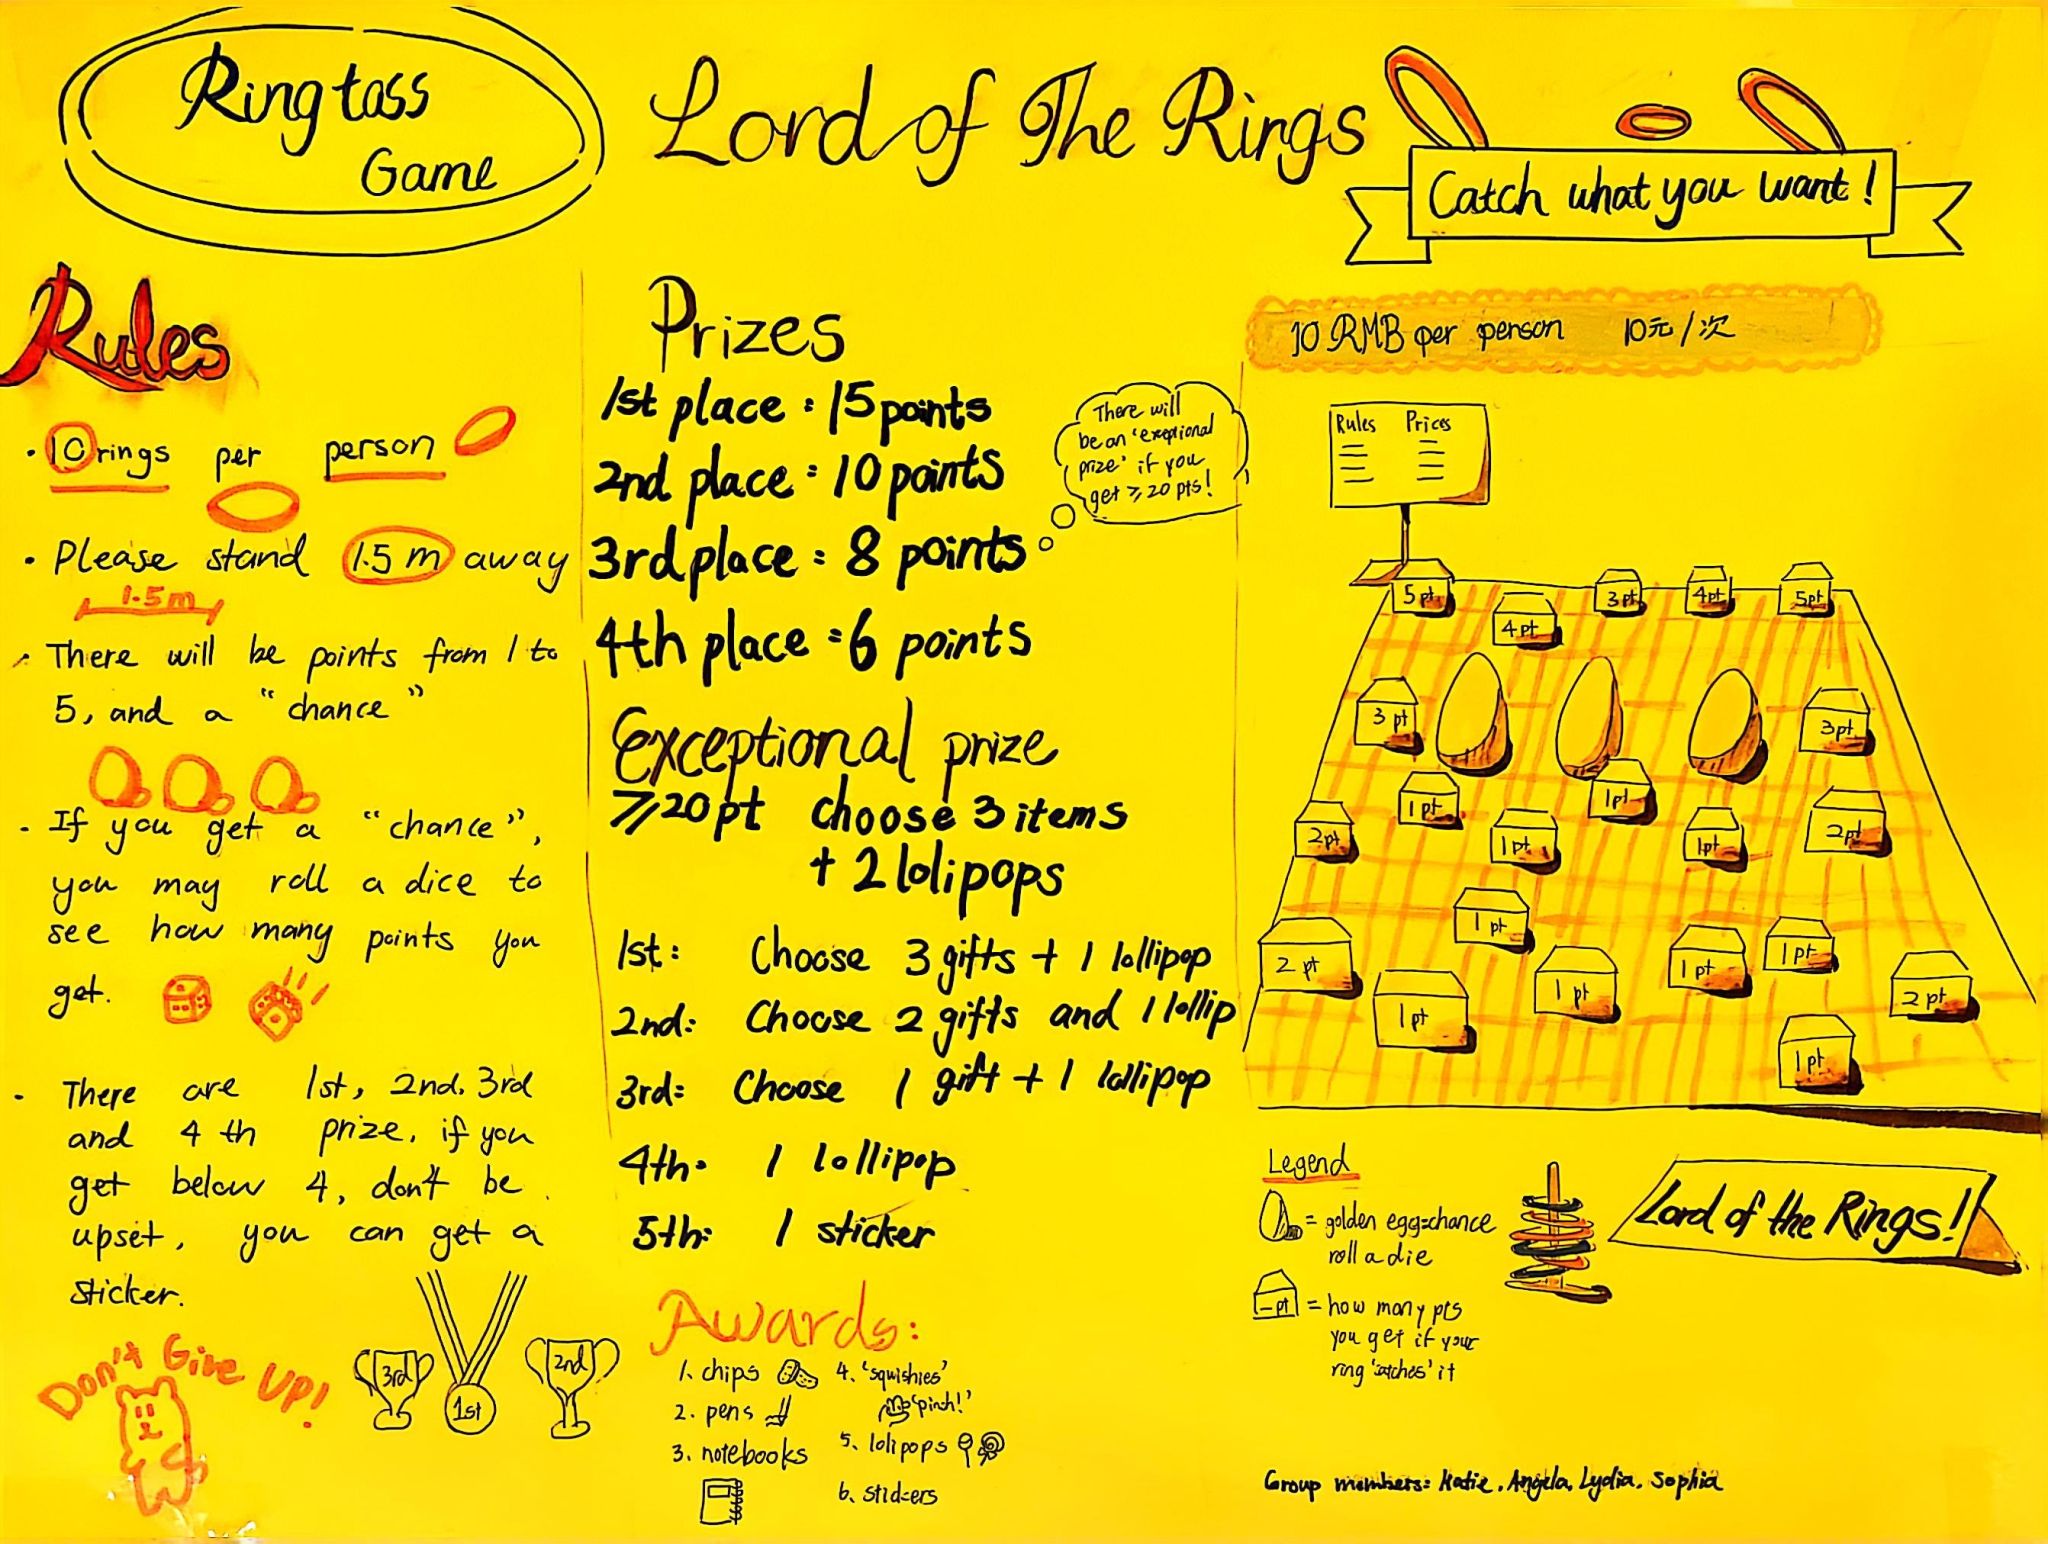 Ring toss
Game
Lord of The Rings
Catch what you want!
Rules
• 10 rings per person
• Please stand 1.5 m away
1.5m
• There will be points from 1 to
5, and a "chance"
• If you get a "chance",
you may roll a dice to
see how many points you
get.
• There are 1st, 2nd, 3rd
and 4 th prize, if you
get below 4, don't be
upset, you can get a
sticker.
Don't Give Up!
3rd
1st
2nd
Prizes
1st place : 15 points
2nd place : 10 points
3rd place : 8 points
4th place : 6 points
There will
be an 'exceptional
prize' if you
get ⩾ 20 pts!
Exceptional prize
⩾20pt choose 3 items
+ 2 lolipops
1st: Choose 3 gifts + 1 lollipop
2nd: Choose 2 gifts and 1 lollip
3rd: Choose 1 gift + 1 lollipop
4th: 1 lollipop
5th: 1 sticker
Awards:
1. chips
2. pens
3. notebooks
4. 'squishies'
'pinch!'
5. lolipops
6. stickers
10 RMB per person 10元/次
Rules Prices
5pt
4pt
3pt
4pt
5pt
3pt
3pt
1pt
1pt
2pt
1pt
1pt
2pt
1pt
2pt
1pt
1pt
1pt
1pt
2pt
1pt
Legend
= golden egg=chance
roll a die
-pt = how many pts
you get if your
ring 'catches' it
Lord of the Rings!!
Group members: Katie, Angela, Lydia, Sophia